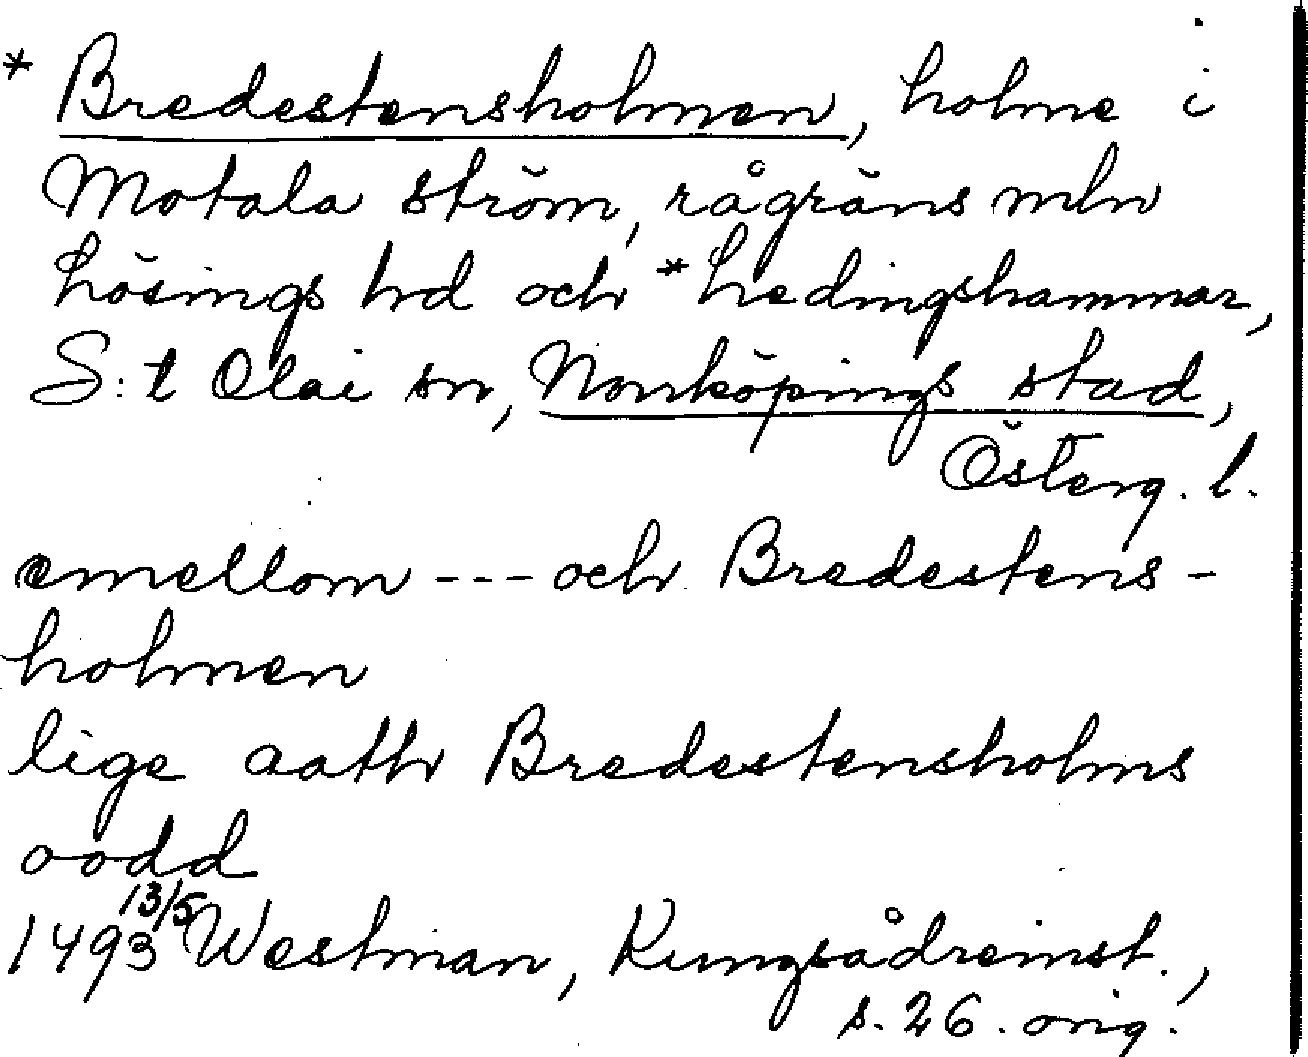 * Bredestensholmen, holme i
Motala ström, rågräns mln
hösings hd och *hedingshammar,
S:t Olai sn, Norrköpings stad,
Österg. l.
emellom --- och Bredestens-
holmen
lige aath Bredestensholms
oodd
1493 13/5 Westman, Kungsådreinst.,
s. 26. orig.